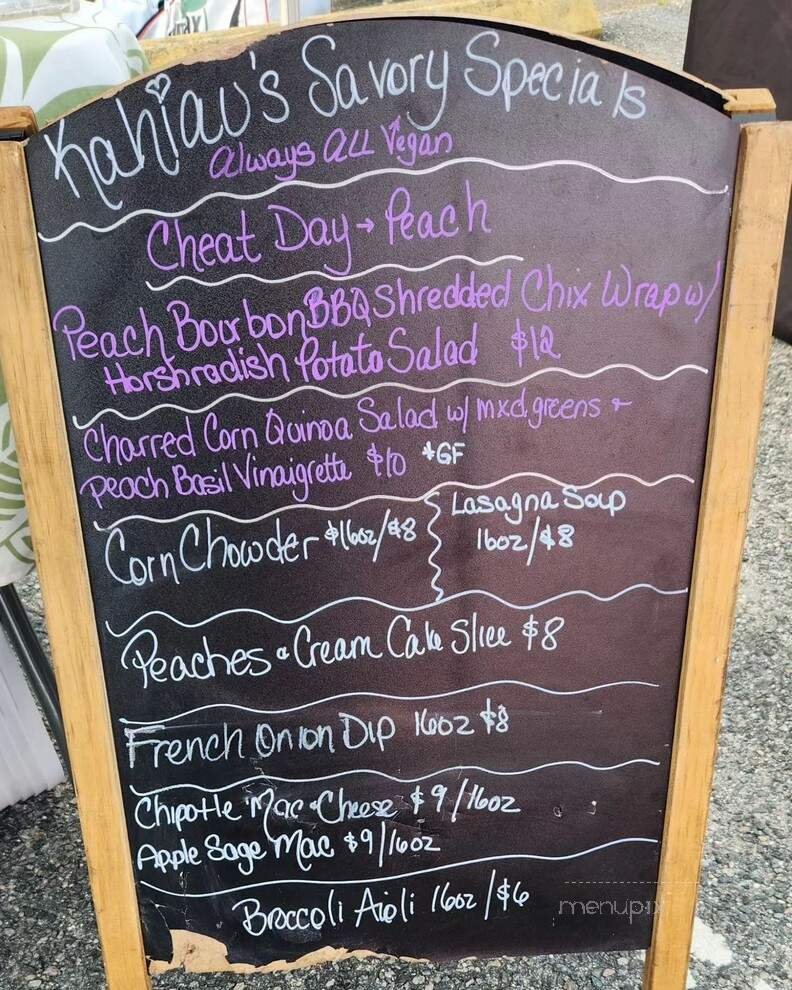 Kahiau's Savory Specials
Always all Vegan
Cheat Day → Peach
Peach Bourbon BBQ Shredded Chix Wrap w/
Horshradish Potato Salad $12
Charred Corn Quinoa Salad w/ mxd greens +
Peach Basil Vinaigrette $10 *GF
Corn Chowder $16oz/$8
Lasagna Soup
16oz/$8
Peaches & Cream Cake Slice $8
French Onion Dip 16oz $8
Chipotle Mac & Cheese $9/16oz
Apple Sage Mac $9/16oz
Broccoli Aioli 16oz/$6
menupix